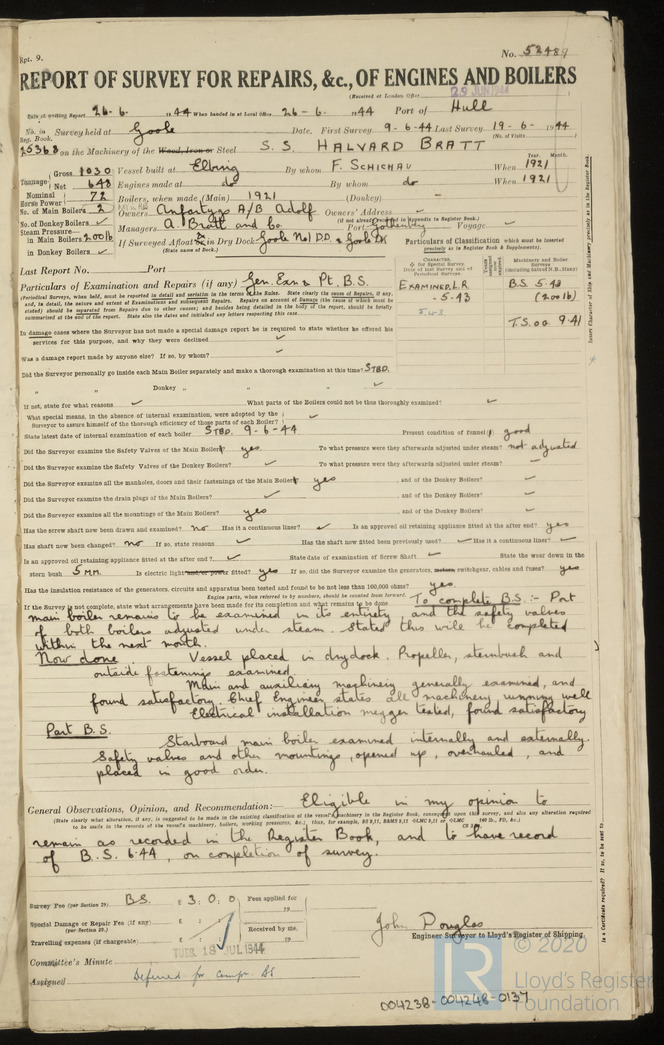 Rpt. 9.
No. 52489
REPORT OF SURVEY FOR REPAIRS, &c., OF ENGINES AND BOILERS
(Received at London Office 29 JUN 1944 )
Date of writing Report 26-6- 1944 When handed in at Local Office 26-6- 1944 Port of Hull
No. in Reg. Book. Survey held at Goole Date. First Survey 9-6-44 Last Survey 19-6- 1944
(No. of Visits )
25363 on the Machinery of the Wood, Iron or Steel S.S. HALVARD BRATT
Tonnage Gross 1030 Vessel built at Elbing By whom F. SCHICHAU When 1921
Net 648 Engines made at do By whom do When 1921
Nominal Horse Power 72 Boilers, when made (Main) 1921 (Donkey) -
No. of Main Boilers 2 Owners Anfartygs A/B Adolf Owners' Address
(If not already recorded in Appendix to Register Book.)
No. of Donkey Boilers Managers A. Bratt and Co. Port Gothenburg Voyage
Steam Pressure in Main Boilers 200 lb If Surveyed Afloat or in Dry Dock Goole No 1 D.D. & Goole Dk
in Donkey Boilers (State name of Dock.)
Particulars of Classification (which must be inserted precisely as in the Register Book & Supplement).
Last Report No. Port
Particulars of Examination and Repairs (if any) Gen. Exn & Pt. B.S.
EXAMINED. L.R. - 5-43
B.S. 5.43 (200 lb)
T.S. OG 9.41
In damage cases where the Surveyor has not made a special damage report he is required to state whether he offered his
services for this purpose, and why they were declined
Was a damage report made by anyone else? If so, by whom?
Did the Surveyor personally go inside each Main Boiler separately and make a thorough examination at this time? STBD.
" " Donkey " " "
If not, state for what reasons What parts of the Boilers could not be thus thoroughly examined?
What special means, in the absence of internal examination, were adopted by the
Surveyor to assure himself of the thorough efficiency of those parts of each Boiler?
State latest date of internal examination of each boiler STBD. 9-6-44 Present condition of funnel(s) good
Did the Surveyor examine the Safety Valves of the Main Boilers? yes To what pressure were they afterwards adjusted under steam? not adjusted
Did the Surveyor examine the Safety Valves of the Donkey Boilers? To what pressure were they afterwards adjusted under steam?
Did the Surveyor examine all the manholes, doors and their fastenings of the Main Boilers? yes , and of the Donkey Boilers?
Did the Surveyor examine the drain plugs of the Main Boilers? , and of the Donkey Boilers?
Did the Surveyor examine all the mountings of the Main Boilers? yes , and of the Donkey Boilers?
Has the screw shaft now been drawn and examined? no Has it a continuous liner? Is an approved oil retaining appliance fitted at the after end? yes
Has shaft now been changed? no If so, state reasons Has the shaft now fitted been previously used? Has it a continuous liner?
Is an approved oil retaining appliance fitted at the after end? State date of examination of Screw Shaft State the wear down in the
stern bush 5 MM. Is electric light and/or power fitted? yes If so, did the Surveyor examine the generators, motors, switchgear, cables and fuses? yes
Has the insulation resistance of the generators, circuits and apparatus been tested and found to be not less than 100,000 ohms? yes
Engine parts, when referred to by numbers, should be counted from forward.
If the Survey is not complete, state what arrangements have been made for its completion and what remains to be done To complete B.S. :- Port
main boiler remains to be examined in its entirety and the safety valves
of both boilers adjusted under steam. Stated this will be completed
within the next month.
Now done Vessel placed in drydock. Propeller, sternbush and
outside fastenings examined.
Main and auxiliary machinery generally examined, and
found satisfactory. Chief Engineer states all machinery running well
Electrical installation megger tested, found satisfactory
Part B.S.
Starboard main boiler examined internally and externally.
Safety valves and other mountings, opened up, overhauled, and
placed in good order.
General Observations, Opinion, and Recommendation:— Eligible in my opinion to
remain as recorded in the Register Book, and to have record
of B.S. 6.44, on completion of survey.
Survey Fee (per Section 29). B.S. £ 3 : 0 : 0 Fees applied for
Special Damage or Repair Fee (if any) £ : :
(per Section 29.)
Travelling expenses (if chargeable) £ : : Received by me,
John Douglas
Engineer Surveyor to Lloyd's Register of Shipping.
Committee's Minute TUES. 18 JUL 1944
Assigned Deferred for Compn BS
© 2020
LR
Lloyd's Register
Foundation
004238-004248-0137